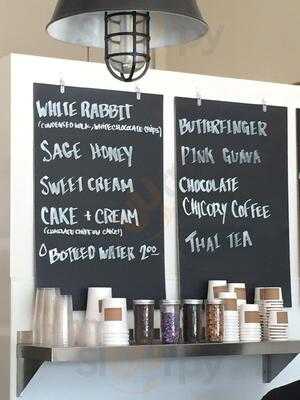 WHITE RABBIT
(CONDENSED MILK, WHITE CHOCOLATE CHIPS)
SAGE HONEY
SWEET CREAM
CAKE + CREAM
BOTTLED WATER 2.00
BUTTERFINGER
PINK GUAVA
CHOCOLATE
CHICORY COFFEE
THAI TEA